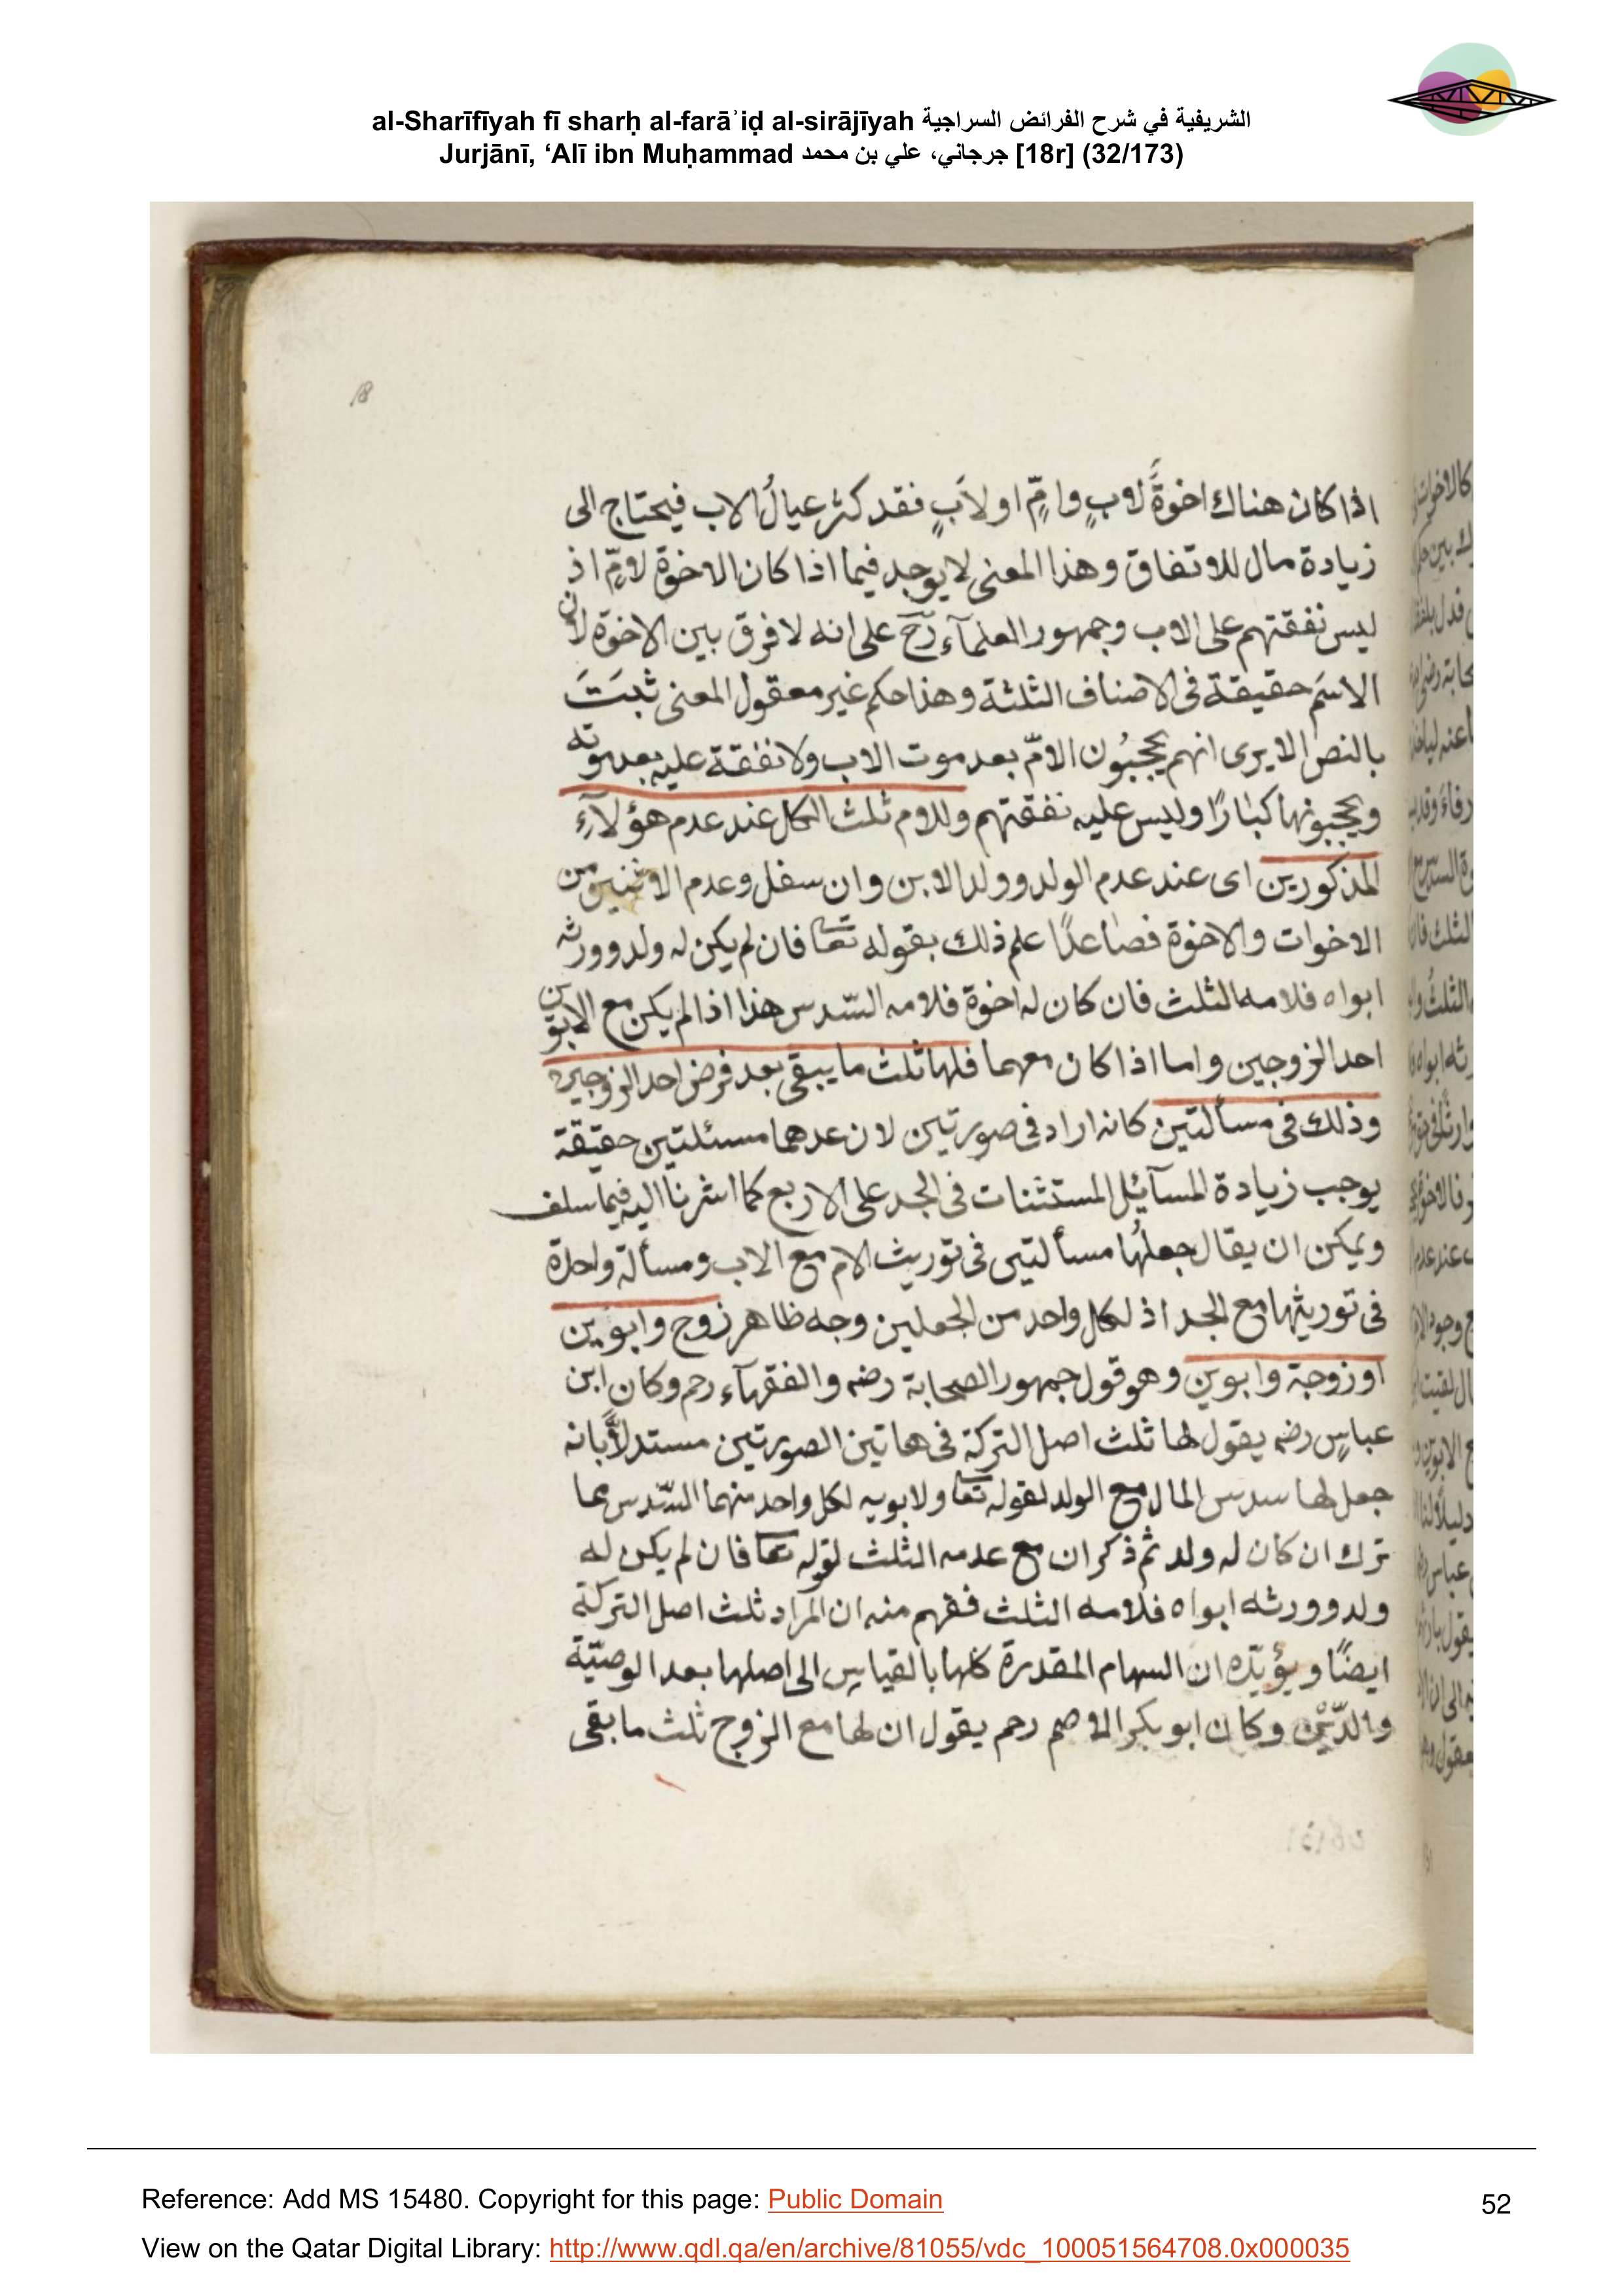 al-Sharīfīyah fī sharḥ al-farāʾiḍ al-sirājīyah الشريفية في شرح الفرائض السراجية
Jurjānī, ‘Alī ibn Muḥammad جرجاني، علي بن محمد [18r] (32/173)
18
اذا كان هناك اخوةً لابٍ وامٍّ او لابٍ فقد كثر عيالُ الاب فيحتاج الى
زيادة مال للانفاق وهذا المعنى لا يوجد فيما اذا كان الاخوة لامٍّ اذ
ليس نفقتهم على الاب وجمهور العلمآء رح على انه لا فرق بين الاخوة لان
الاسم حقيقة فى الاصناف الثلثة وهذا حكم غير معقول المعنى ثبتَ
بالنص الا يرى انهم يحجبُون الامّ بعد موت الاب ولا نفقة عليه بعد موته
ويحجبونها كبارًا وليس عليه نفقتهم وللام ثلث الكل عند عدم هؤلآءِ
المذكورين اى عند عدم الولد وولد الابن وان سفل وعدم الاثنين من
الاخوات والاخوة فصاعدًا علم ذلك بقوله تعا فان لم يكن له ولد وورثه
ابواه فلامه الثلث فان كان له اخوة فلامه السّدس هذا اذا لم يكن مع الابوين
احد الزوجين واما اذا كان معهما فلها ثلث ما يبقى بعد فرض احد الزوجين
وذلك فى مسألتين كانه اراد فى صورتين لان عدهما مسئلتين حقيقة
يوجب زيادة المسآئل المستثنات فى الجد على الاربع كما اشرنا اليه فيما سلف
ويمكن ان يقال جعلُها مسألتين فى توريث الام مع الاب ومسألة واحدة
فى توريثها مع الجد اذ لكل واحد من الجعلين وجه ظاهر زوج وابوين
او زوجة وابوين وهو قول جمهور الصحابة رضه والفقهآء رحم وكان ابن
عباسٍ رضه يقول لها ثلث اصل التركة فى هاتين الصورتين مستدلاًّ بانه
جعل لها سدس المال مع الولد لقوله تعا ولابويه لكل واحد منهما السّدس مما
ترك ان كان له ولد ثم ذكر ان مع عدمه الثلث لقوله تعا فان لم يكن له
ولد وورثه ابواه فلامه الثلث ففهم منه ان المراد ثلث اصل التركة
ايضًا ويؤيّده ان السهام المقدرة كلها بالقياس الى اصلها بعد الوصيّة
والدّيْن وكان ابو بكر الاصم رحم يقول ان لها مع الزوج ثلث ما بقى
Reference: Add MS 15480. Copyright for this page: Public Domain
52
View on the Qatar Digital Library: http://www.qdl.qa/en/archive/81055/vdc_100051564708.0x000035